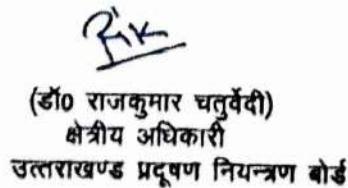 (डॉ0 राजकुमार चतुर्वेदी)
क्षेत्रीय अधिकारी
उत्तराखण्ड प्रदूषण नियन्त्रण बोर्ड